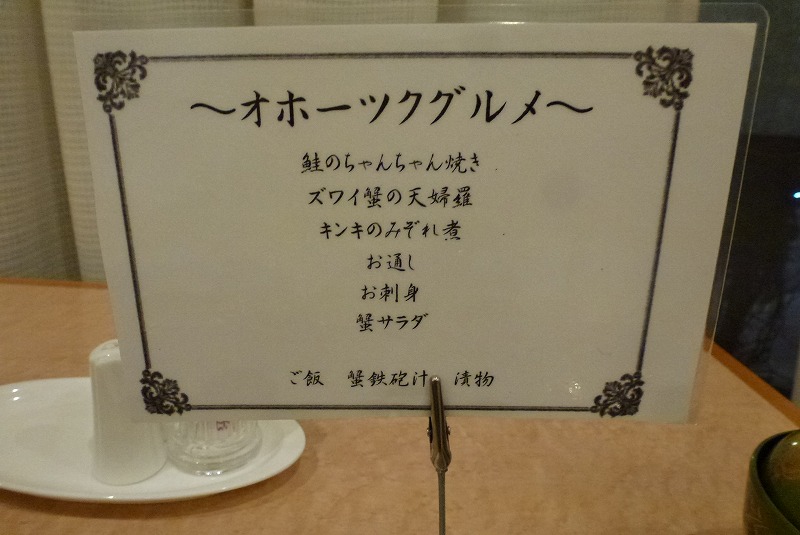 ～オホーツクグルメ～
鮭のちゃんちゃん焼き
ズワイ蟹の天婦羅
キンキのみぞれ煮
お通し
お刺身
蟹サラダ
ご飯　蟹鉄砲汁　漬物